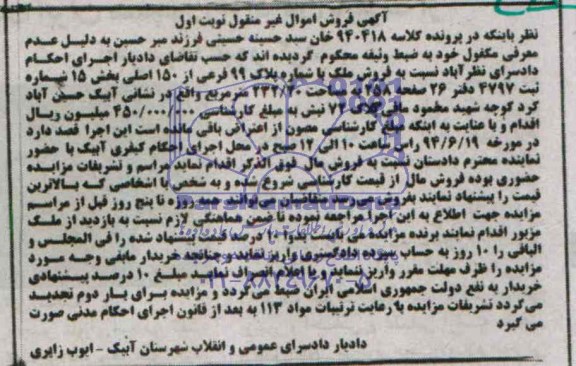 آگهی فروش اموال غیر منقول نوبت اول
نظر باینکه در پرونده کلاسه ۹۴۰۴۱۸ خان سید حسینه حسینی فرزند میر حسین به دلیل عدم
معرفی مکفول خود به ضبط وثیقه محکوم گردیده اند که حسب تقاضای دادیار اجرای احکام
دادسرای نظرآباد نسبت به فروش ملک با شماره پلاک ۹۹ فرعی از ۱۵۰ اصلی بخش ۱۵ شماره
ثبت ۴۷۹۷ دفتر ۲۶ صفحه ۲۵۸ به مساحت ۲۳۲/۷۰ متر مربع واقع در نشانی آبیک حسین آباد
کرد کوچه شهید محمود مافی پلاک ۷۱ نبش به مبلغ کارشناسی ۴۵۰/۰۰۰ میلیون ریال
اقدام و با عنایت به اینکه مبلغ کارشناسی مصون از اعتراض باقی مانده است این اجرا قصد دارد
در مورخه ۹۴/۶/۱۹ راس ساعت ۱۰ الی ۱۲ صبح در محل اجرای احکام کیفری آبیک با حضور
نماینده محترم دادستان نسبت به فروش مال فوق الذکر اقدام نماید مراسم و تشریفات مزایده
حضوری بوده فروش مال از قیمت کارشناسی شروع شده و به شخص یا اشخاصی که بالاترین
قیمت را پیشنهاد نمایند بفروش می رسد متقاضیان می توانند همه روزه تا پنج روز قبل از مراسم
مزایده جهت اطلاع به این اجرا مراجعه نموده تا ضمن هماهنگی لازم نسبت به بازدید از ملک
مزبور اقدام نمایند برنده مزایده می بایست بدوا ۱۰ درصد قیمت پیشنهاد شده را فی المجلس و
الباقی را ۱۰ روز به حساب سپرده دادگستری واریز نمایند چنانچه خریدار مابقی وجه مورد
مزایده را ظرف مهلت مقرر واریز ننماید و یا اعلام انصراف نماید مبلغ ۱۰ درصد پیشنهادی
خریدار به نفع دولت جمهوری اسلامی ایران ضبط می گردد و مزایده برای بار دوم تجدید
می گردد تشریفات مزایده با رعایت ترتیبات مواد ۱۱۳ به بعد از قانون اجرای احکام مدنی صورت
می گیرد
دادیار دادسرای عمومی و انقلاب شهرستان آبیک - ایوب زایری
۰۲۱-۸۸۳۴۹۶۷۰-۵